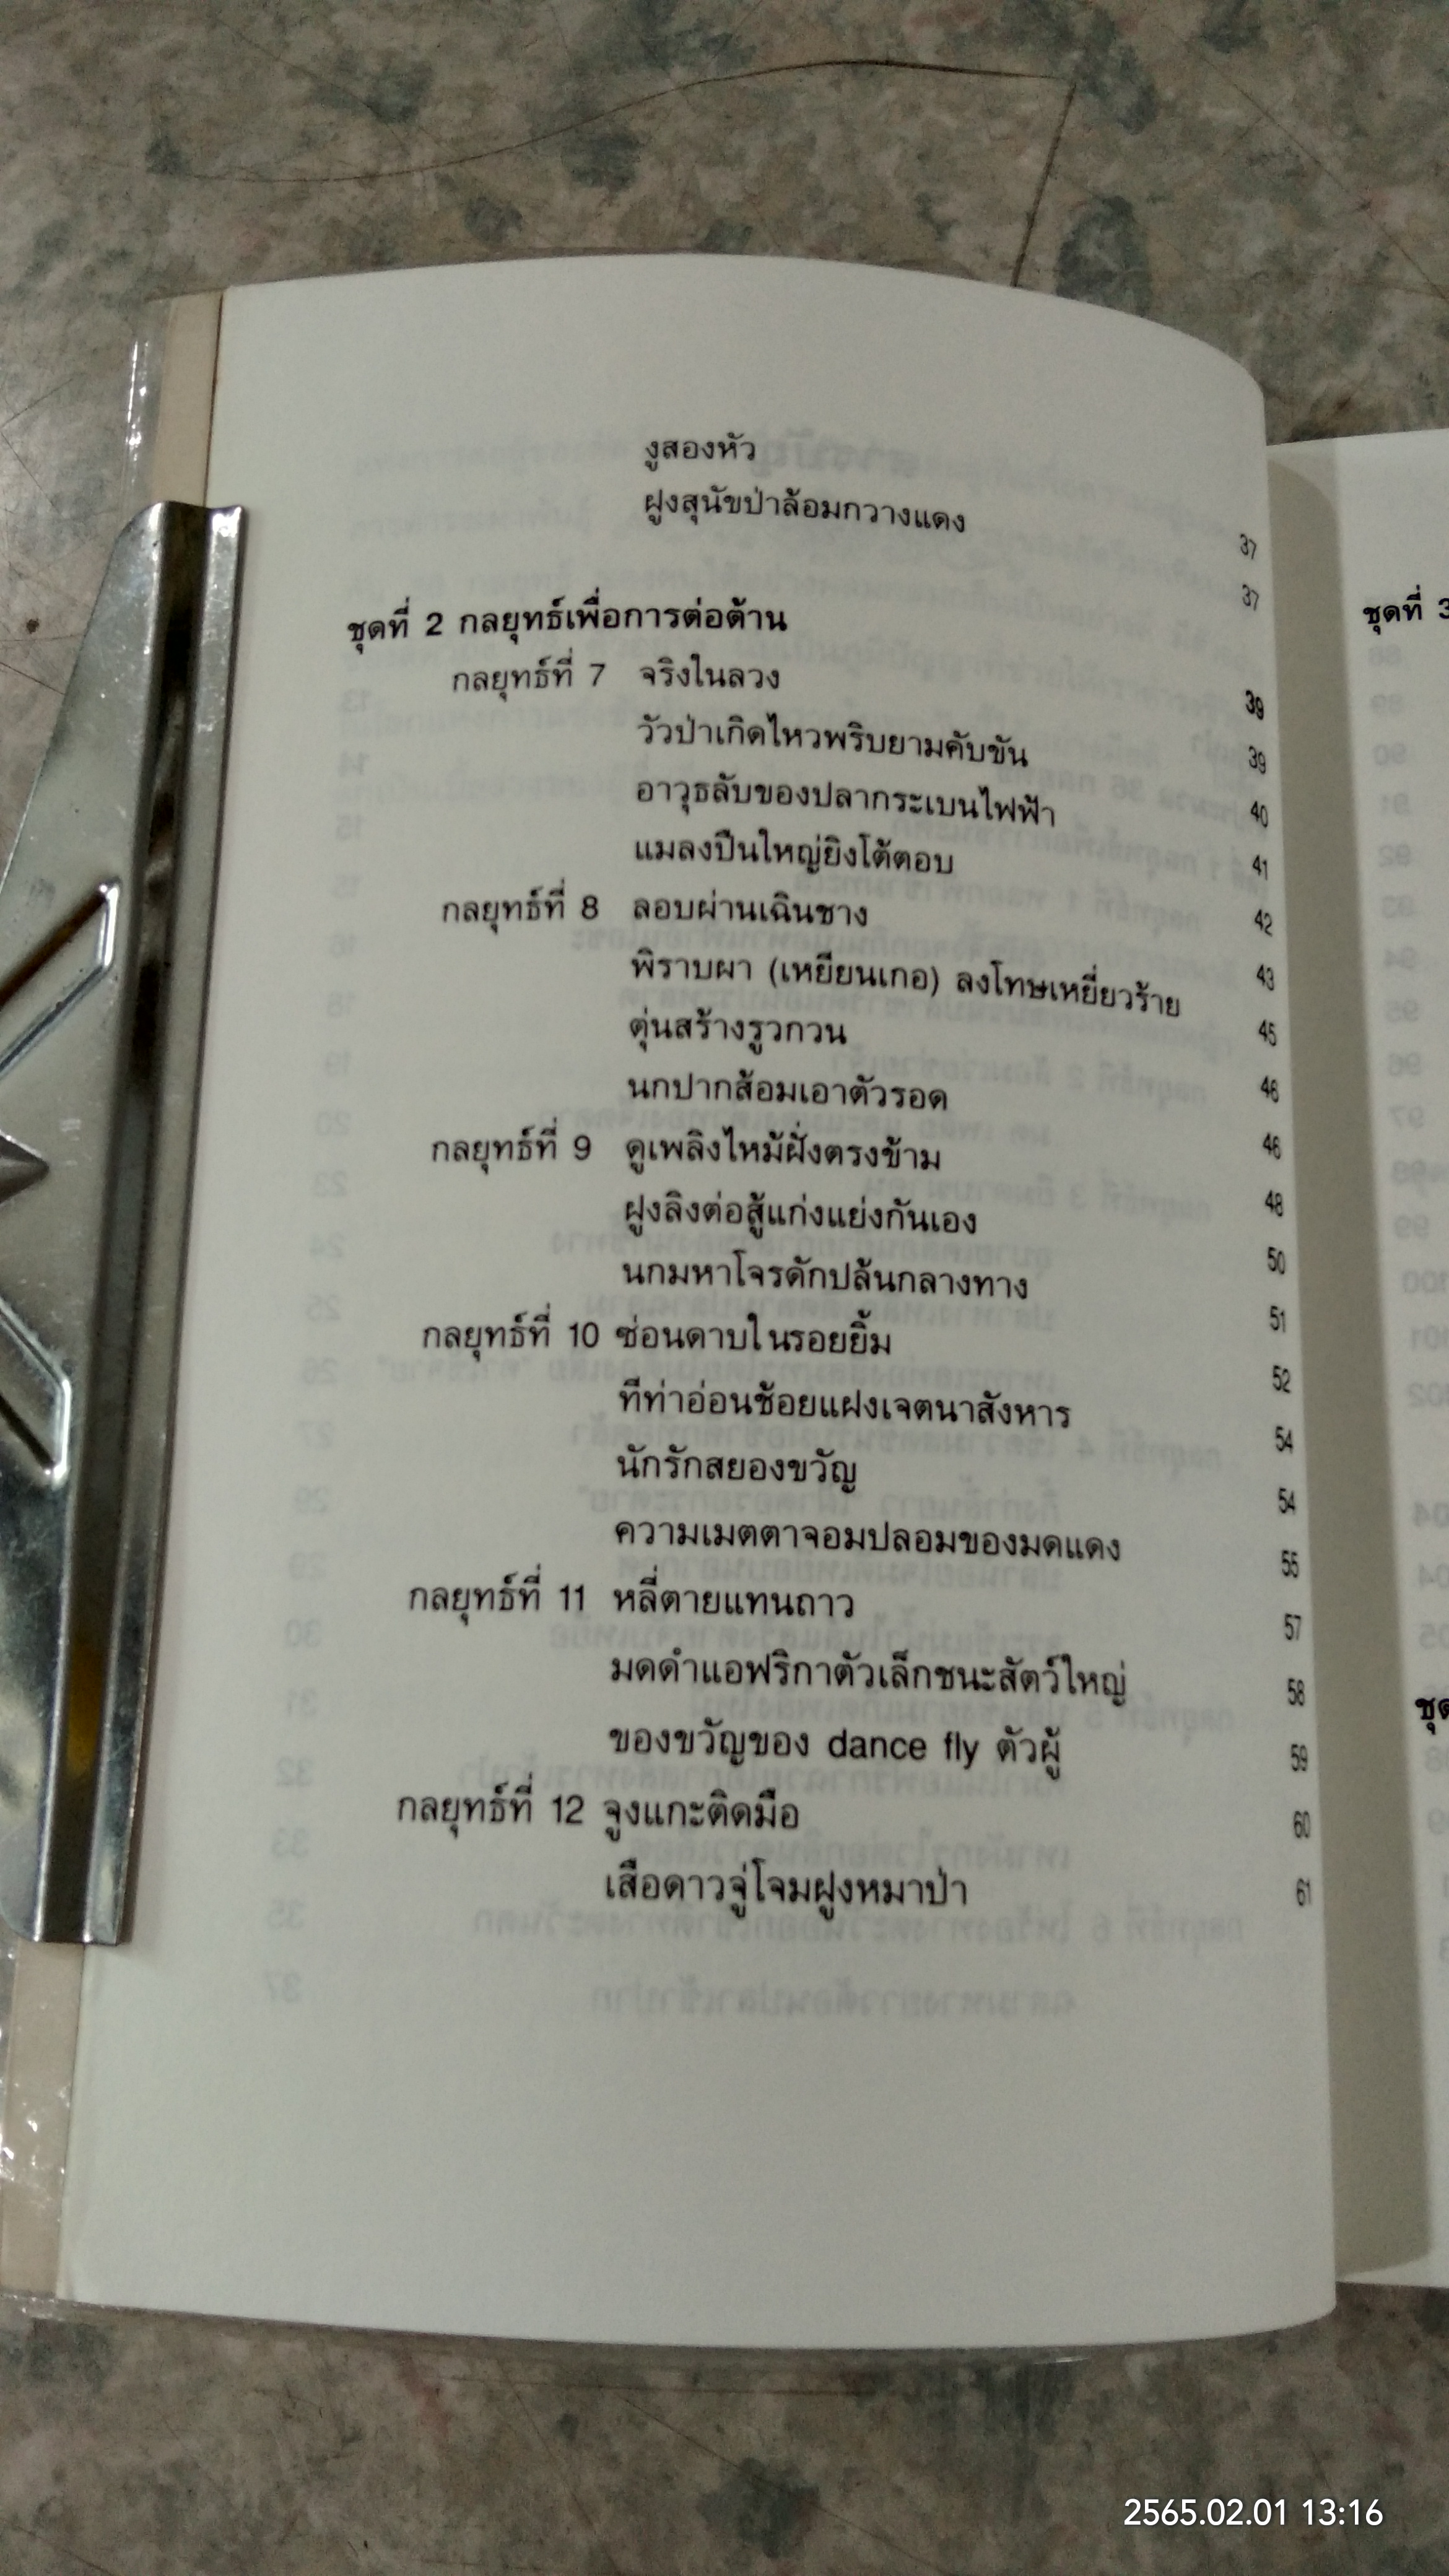 งูสองหัว 37
ฝูงสุนัขป่าล้อมกวางแดง 37
ชุดที่ 2 กลยุทธ์เพื่อการต่อต้าน 39
กลยุทธ์ที่ 7 จริงในลวง 39
วัวป่าเกิดไหวพริบยามคับขัน 40
อาวุธลับของปลากระเบนไฟฟ้า 41
แมลงปืนใหญ่ยิงโต้ตอบ 42
กลยุทธ์ที่ 8 ลอบผ่านเฉินชาง 43
พิราบผา (เหยียนเกอ) ลงโทษเหยี่ยวร้าย 45
ตุ่นสร้างรูวกวน 46
นกปากส้อมเอาตัวรอด 46
กลยุทธ์ที่ 9 ดูเพลิงไหม้ฝั่งตรงข้าม 48
ฝูงลิงต่อสู้แก่งแย่งกันเอง 50
นกมหาโจรดักปล้นกลางทาง 51
กลยุทธ์ที่ 10 ซ่อนดาบในรอยยิ้ม 52
ทีท่าอ่อนช้อยแฝงเจตนาสังหาร 54
นักรักสยองขวัญ 54
ความเมตตาจอมปลอมของมดแดง 55
กลยุทธ์ที่ 11 หลี่ตายแทนถาว 57
มดดำแอฟริกาตัวเล็กชนะสัตว์ใหญ่ 58
ของขวัญของ dance fly ตัวผู้ 59
กลยุทธ์ที่ 12 จูงแกะติดมือ 60
เสือดาวจู่โจมฝูงหมาป่า 61
ชุดที่ 3
2565.02.01 13:16